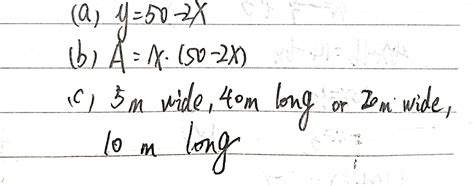 (a) y=50-2x
(b) A = x·(50-2x)
(c) 5m wide, 40m long or 20m wide,
10 m long